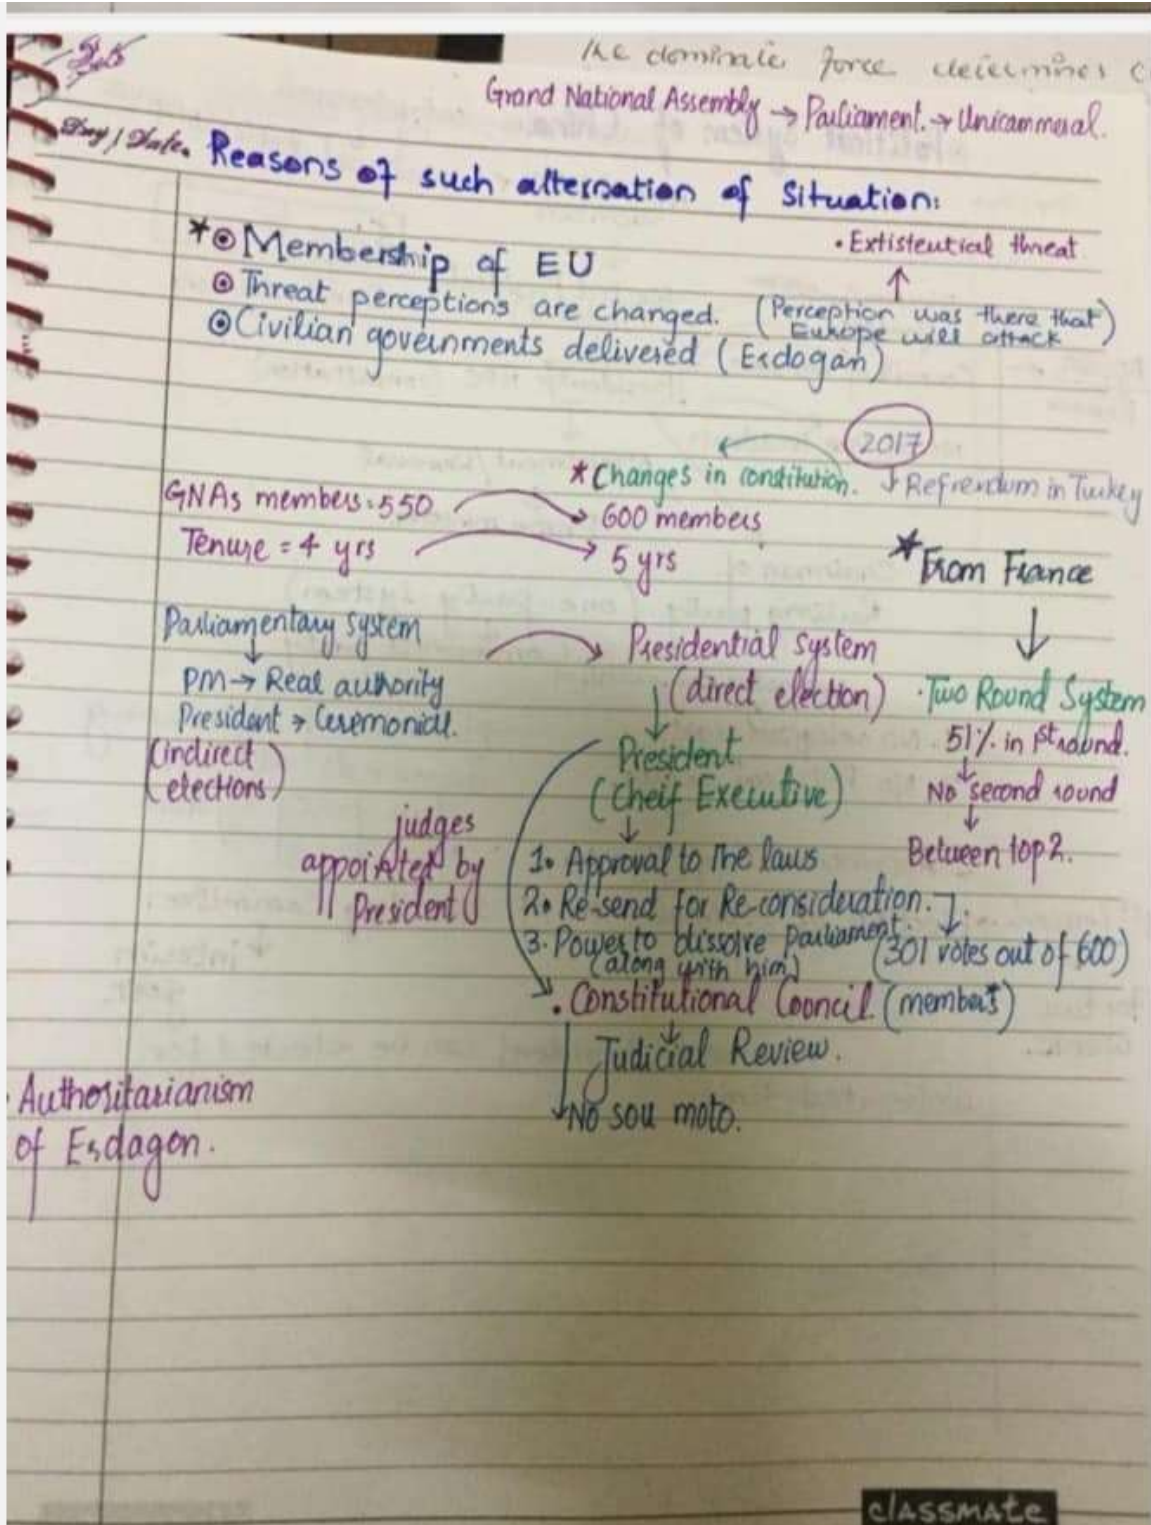 The dominate force determines
Grand National Assembly → Parliament. → Unicammeral.
Day / Date.
Reasons of such alternation of Situation:
• Extistential threat
* ⊙ Membership of EU
↑
⊙ Threat perceptions are changed. (Perception was there that Europe will attack)
⊙ Civilian governments delivered (Erdogan)
2017
* Changes in constitution. ↓ Refrendum in Turkey
GNAs members: 550 → 600 members
Tenure = 4 yrs → 5 yrs
* From France
↓
Parliamentary system → Presidential system
↓
(direct election)
PM → Real authority
President → Ceremonial.
(indirect elections)
• Two Round System
51% in 1st round.
↓
No second round
↓
Between top 2.
President
(Cheif Executive)
↓
judges
appointed by
President
1. Approval to the laws
2. Re-send for Re-consideration.
3. Power to dissolve Parliament.
(along with him)
(301 votes out of 600)
• Constitutional Council (members)
↓
Judicial Review.
↓ No sou moto.
• Authoritarianism
of Erdagon.
classmate